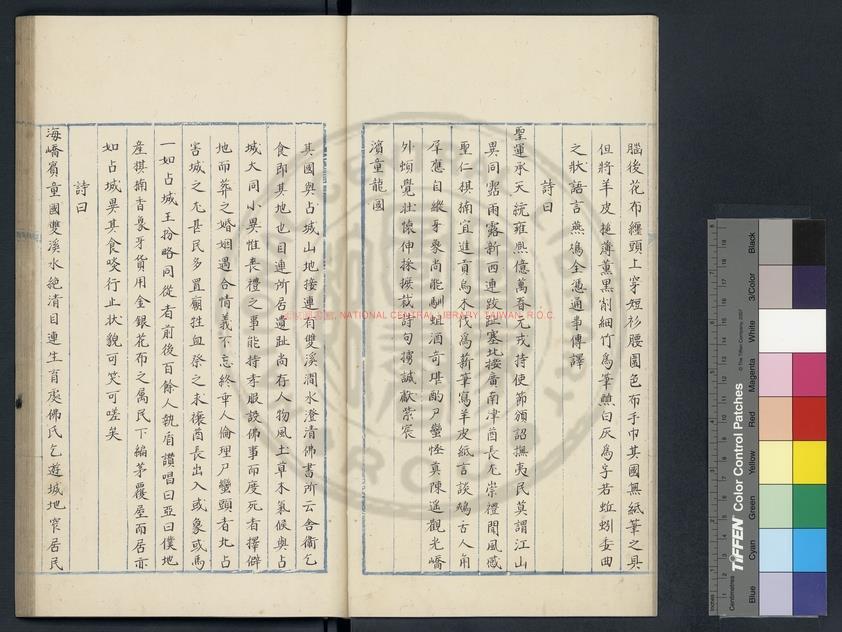 腦後花布纏頭上穿短衫腰圍色布手巾其國無紙筆之具
但將羊皮搥薄薰黑削細竹為筆蘸白灰為字若蚯蚓委曲
之狀語言燕鴂全憑通事傳譯
詩曰
聖運承天統雍熙億萬春元戎持使節頒詔撫夷民莫謂江山
異同霑雨露新西連跤趾塞北接廣南津酋長尤崇禮聞風感
聖仁棋楠宜進貢烏木伐為薪筆寫羊皮紙言談鴂古人角
犀應自縱牙象尚能馴蛆酒奇堪酌尸蠻怪真陳遙觀光嶠
外頓覺壯懷伸採摭裁詩句攄誠獻紫宸
濱童龍國
其國與占城山地接連有雙溪澗水澄清佛書所云舍衛乞
食即其地也目連所居遺趾尚存人物風土草木氣候與占
城大同小異惟喪禮之事能持孝服設佛事而度死者擇僻
地而葬之婚姻遇合情義不忘終乖人倫理尸蠻頭者比占
害城之尤甚民多置廟牲血祭之求禳酋長出入或象或馬
一如占城王扮略同從者前後百餘人執盾讚唱曰亞曰僕地
產棋楠香象牙貨用金銀花布之屬民下編茅覆屋而居亦
如占城異其食啖行止狀貌可笑可嗟矣
詩曰
海嶠濱童國雙溪水絕清目連生育處佛氏乞遊城地窄居民
NATIONAL CENTRAL LIBRARY, TAIWAN, R.O.C.
TIFFEN Color Control Patches
© The Tiffen Company, 2007
Blue Cyan Green Yellow Red Magenta White 3/Color Black
Inches
Centimetres